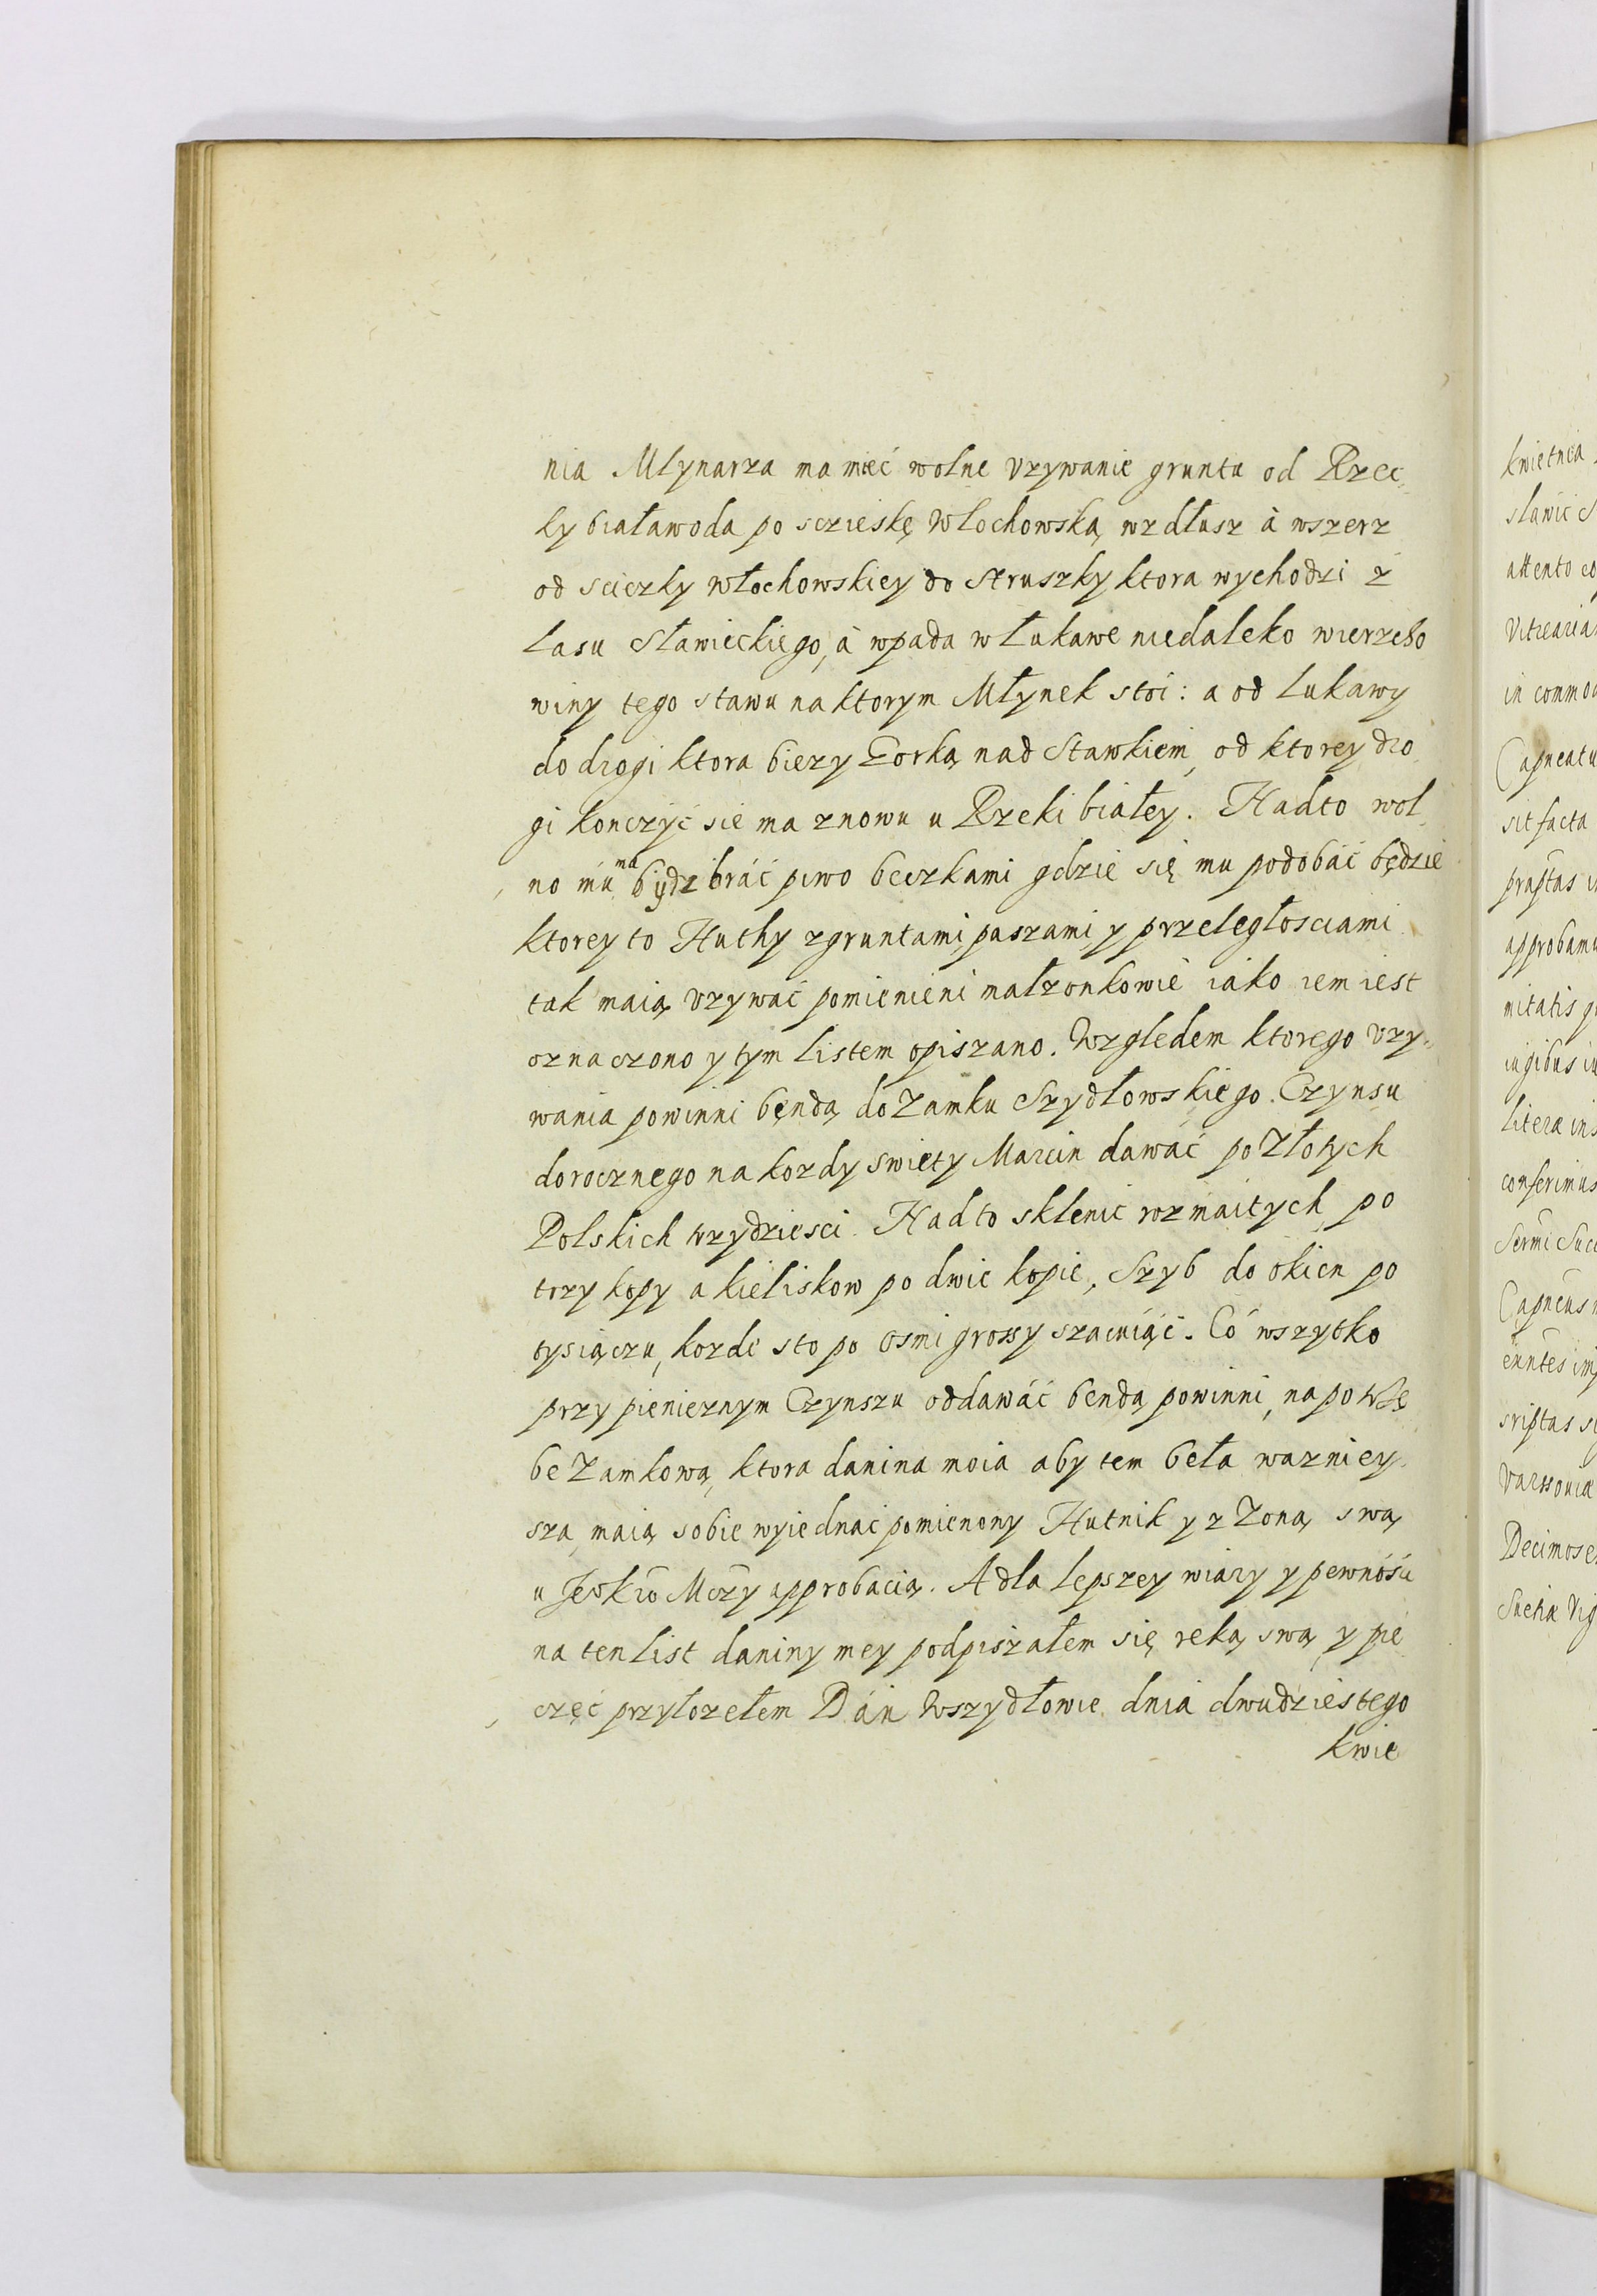 nia Młynarza ma mieć wolne vzywanie gruntu od Rzec,
ky białawoda po sczieskę Włochowską, wzdłusz à wszerz
od scieczky włochowskiey do struszky ktora wychodzi z
lasu Sławieckiego, à wpada w Łukawe niedaleko wierzcho
winy tego stawu na ktorym Młynek stoi: a od Lukawy
do drogi ktora biezy Gorką nad Stawkiem, od ktorey dro,
gi konczyć sie ma znowu u Rzeki białey. Nadto wol,
no mu ma bydz bráć piwo beczkami gdzie się mu podobáć będzie
ktorey to Huthy zgruntami, paszami, y przeległosciami
tak maią vzywać pomienieni małzonkowie iako iem iest
oznaczono y tym listem opiszano. Względem ktorego vzy,
wania powinni będą do Zamku Szydłowskiego. Czynsu
dorocznego na kozdy swiety Marcin dawać po Złotych
Polskich trzydziesci. Nadto sklenic rozmaitych po
trzy kopy a kieliskow po dwie kopie, Szyb do okien po
tysiączu, kozde sto po osmi grossy szacuiąć. Co wszytko
przy pienieznym Czynszu oddawáć bendą powinni, na potrze
be Zamkową, ktora danina moia aby tem beła wazniey,
sza, maią sobie wyiednac pomienony Hutnik y z Zoną swą
u Je° Kro Mczy approbacią. A dla lepszey wiary y pewnosci
na ten list daniny mey podpiszałem się ręką swą y pie
częć przylozełem Dán Wszydłowie dnia dwudziestego
kwie
kwietnia
attento
in commo
sit facta
approbamu
mitatis
conferimus
Decimose